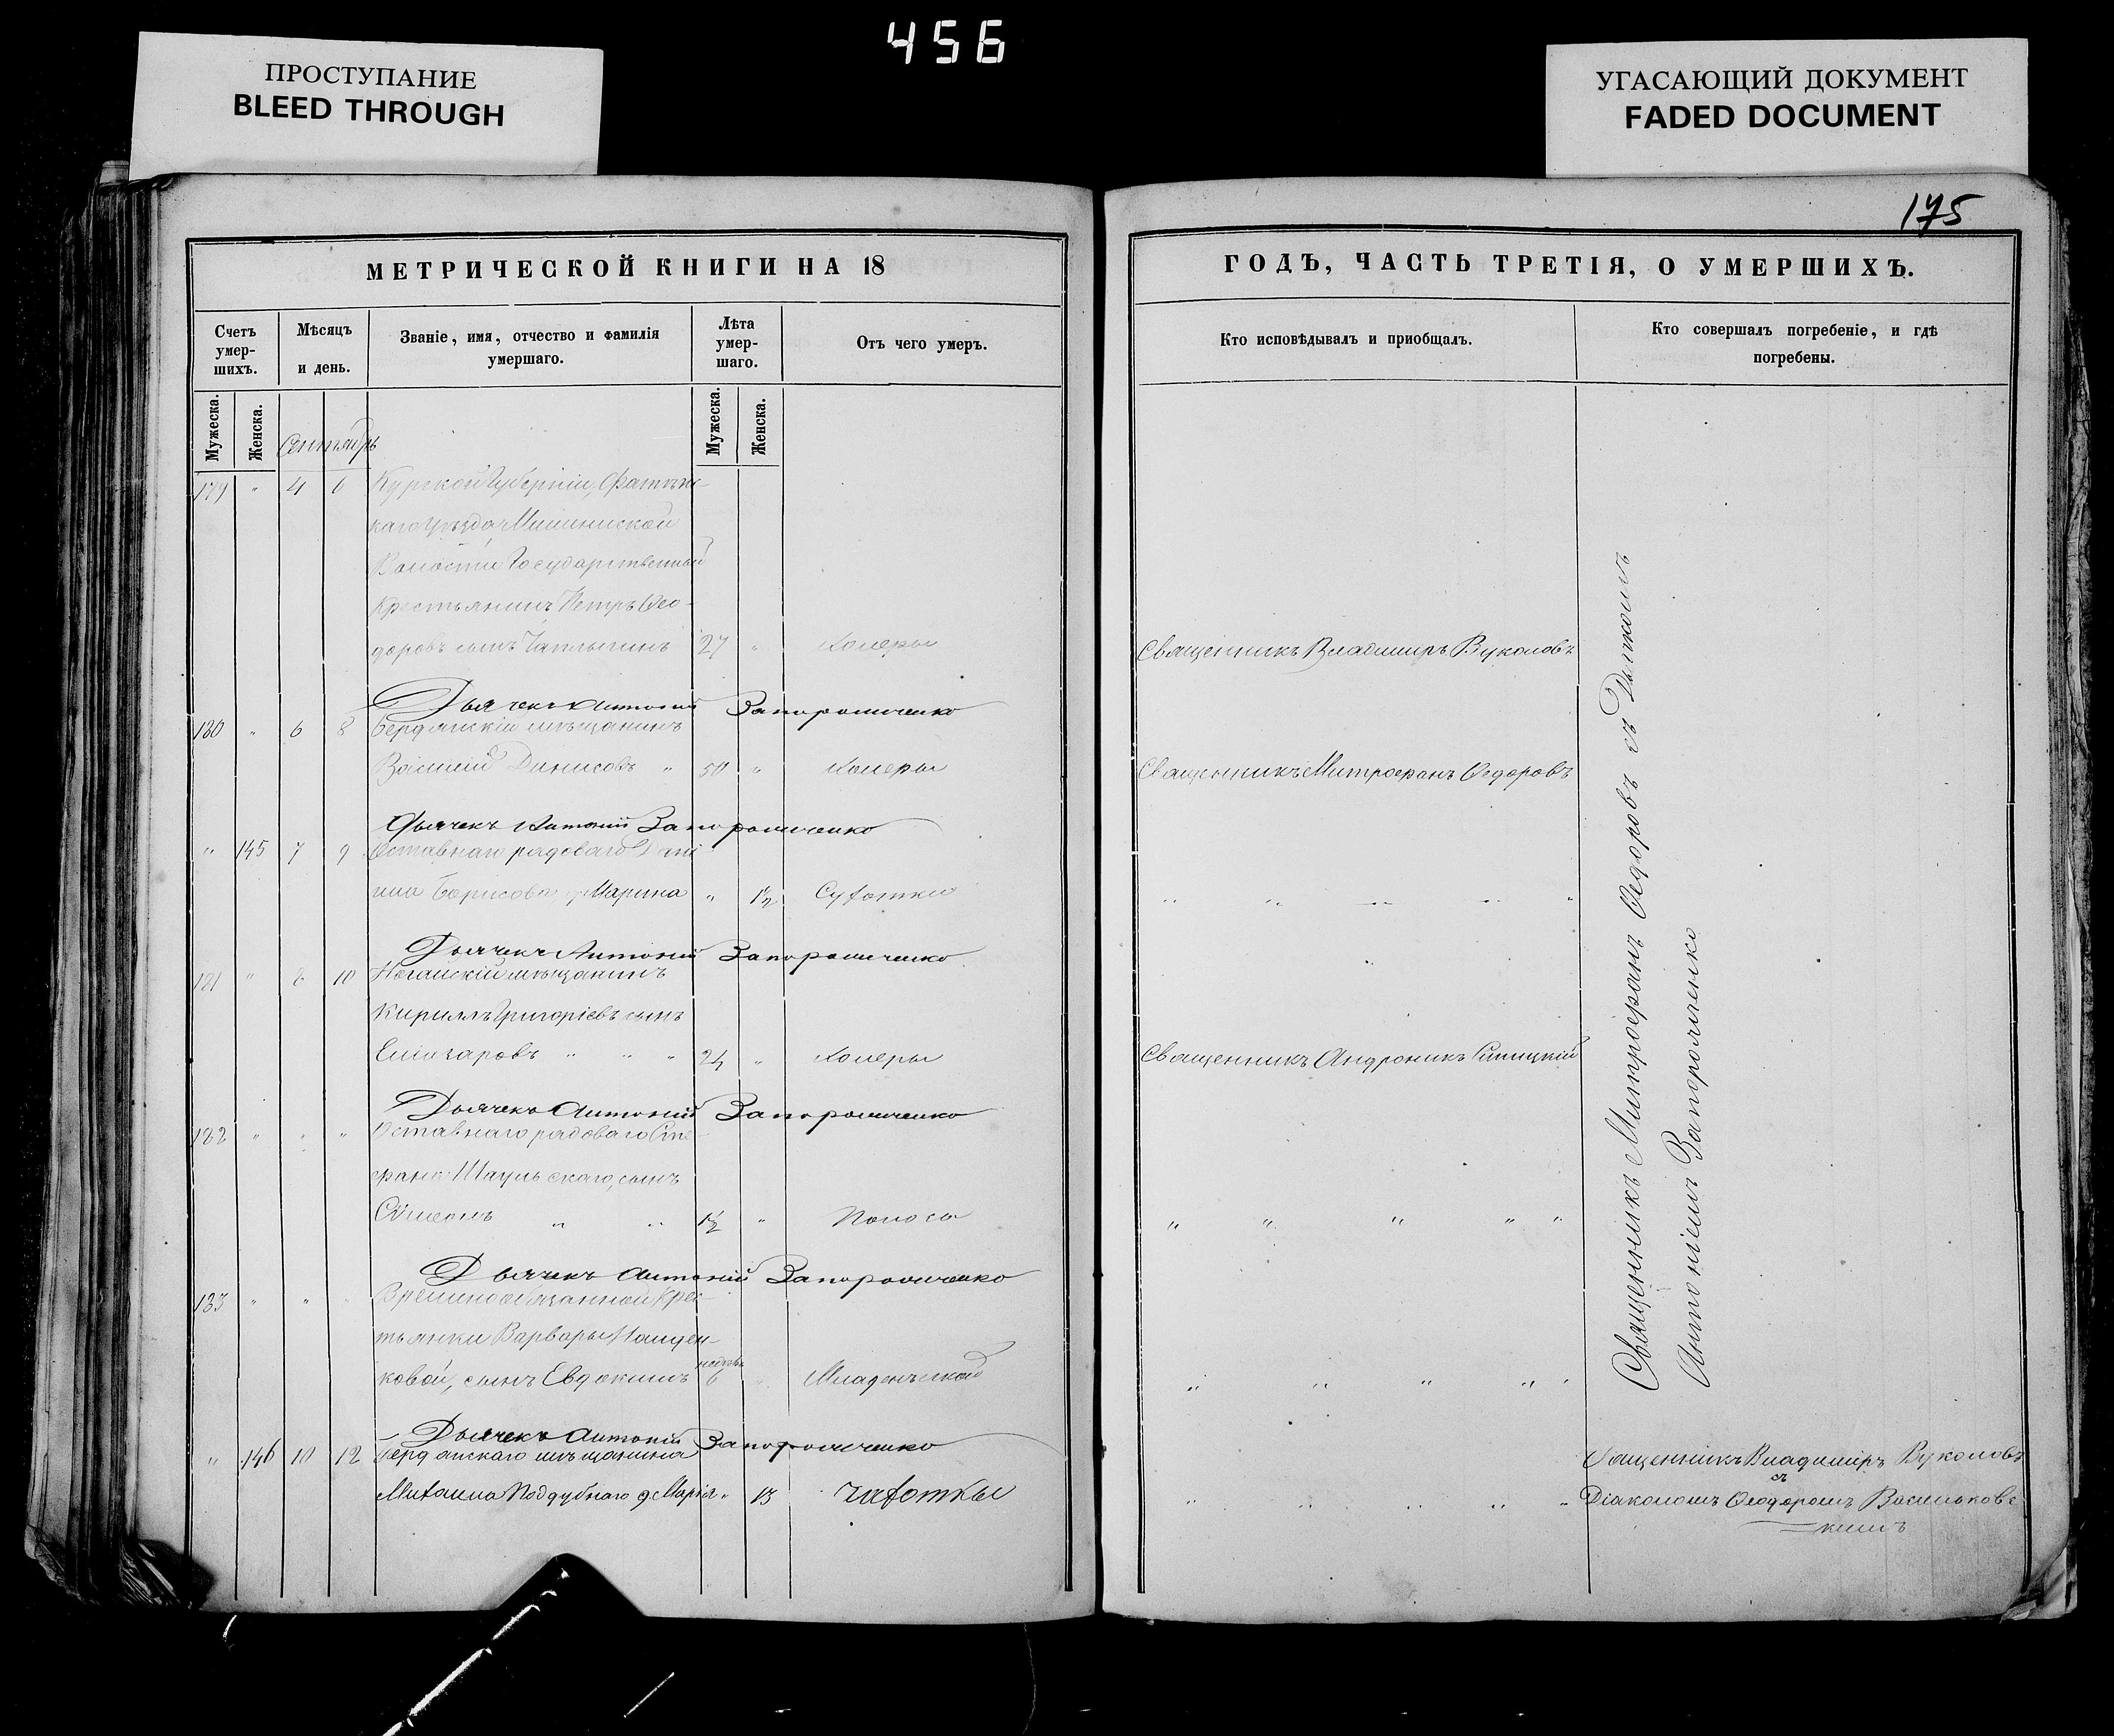 456
ПРОСТУПАНИЕ
BLEED THROUGH
УГАСАЮЩИЙ ДОКУМЕНТ
FADED DOCUMENT
175
МЕТРИЧЕСКОЙ КНИГИ НА 18
Счетъ умер-шихъ.
Мѣсяцъ и день.
Званіе, имя, отчество и фамилія умершаго.
Лѣта умер-шаго.
Отъ чего умеръ.
Мужеска.
Женска.
Мужеска.
Женска.
Сентябрь
179 " 4 6 Курской Губерніи, Фатѣж-
каго Уѣзда,
Волости Государственный
Крестьянинъ Петръ Ѳео-
доровъ сынъ Чаплыгинъ 27 " Холеры
Дьячекъ Антоній Запорожченко
180 " 6 8 Бердянскій мѣщанинъ
Василій Динисовъ " 50 " Холеры
Дьячекъ Антоній Запорожченко
" 145 7 9 Оставнаго рядоваго Дані
ила Борисова, д. Марина " 1½ Сухотки
Дьячекъ Антоній Запорожченко
181 " 8 10 Ногайскій мѣщанинъ
Кириллъ Григоріевъ сынъ
Елизаровъ " " " 24 " Холеры
Дьячекъ Антоній Запорожченко
182 " " " Оставнаго рядоваго Сте-
фана сынъ
Сѵмеонъ " " 1½ " Поноса
Дьячекъ Антоній Запорожченко
183 " " Временнообязанной Крес-
тьянки Варвары
ковой, сынъ Евдокимъ недѣль 6 " Младенческой
Дьячекъ Антоній Запорожченко
" 146 10 12 Бердянскаго мѣщанина
Михаила Поддубнаго д. Марія " 13 Чахотки
ГОДЪ, ЧАСТЬ ТРЕТІЯ, О УМЕРШИХЪ.
Кто исповѣдывалъ и приобщалъ.
Кто совершалъ погребеніе, и гдѣ погребены.
Священникъ Владиміръ Вуколовъ
Священникъ Митрофанъ Ѳедоровъ
" " " " "
Священникъ Андроникъ Синицкій
" " " " "
" " " " "
" " " " "
Священникъ Митрофанъ Ѳедоровъ съ Дьячкомъ
Антоніемъ Запорожченко
Священникъ Владиміръ Вуколовъ
съ
Діакономъ Ѳеодоромъ Васильковс-
кимъ